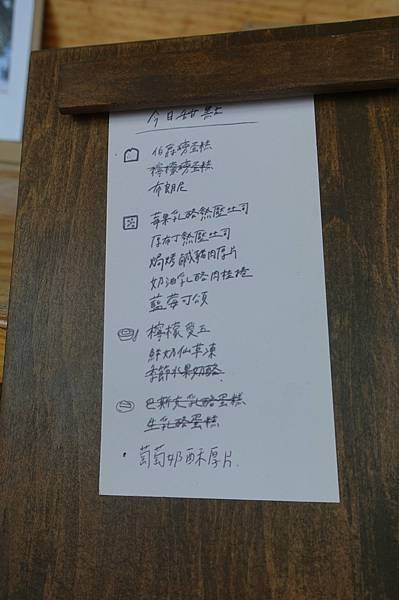 今日甜點
伯爵磅蛋糕
檸檬磅蛋糕
布朗尼
莓果乳酪熱壓吐司
厚布丁熱壓吐司
焗烤鹹豬肉厚片
奶油乳酪肉桂捲
藍莓可頌
檸檬愛玉
鮮奶仙草凍
季節水果奶酪
巴斯克乳酪蛋糕
生乳酪蛋糕
葡萄奶酥厚片